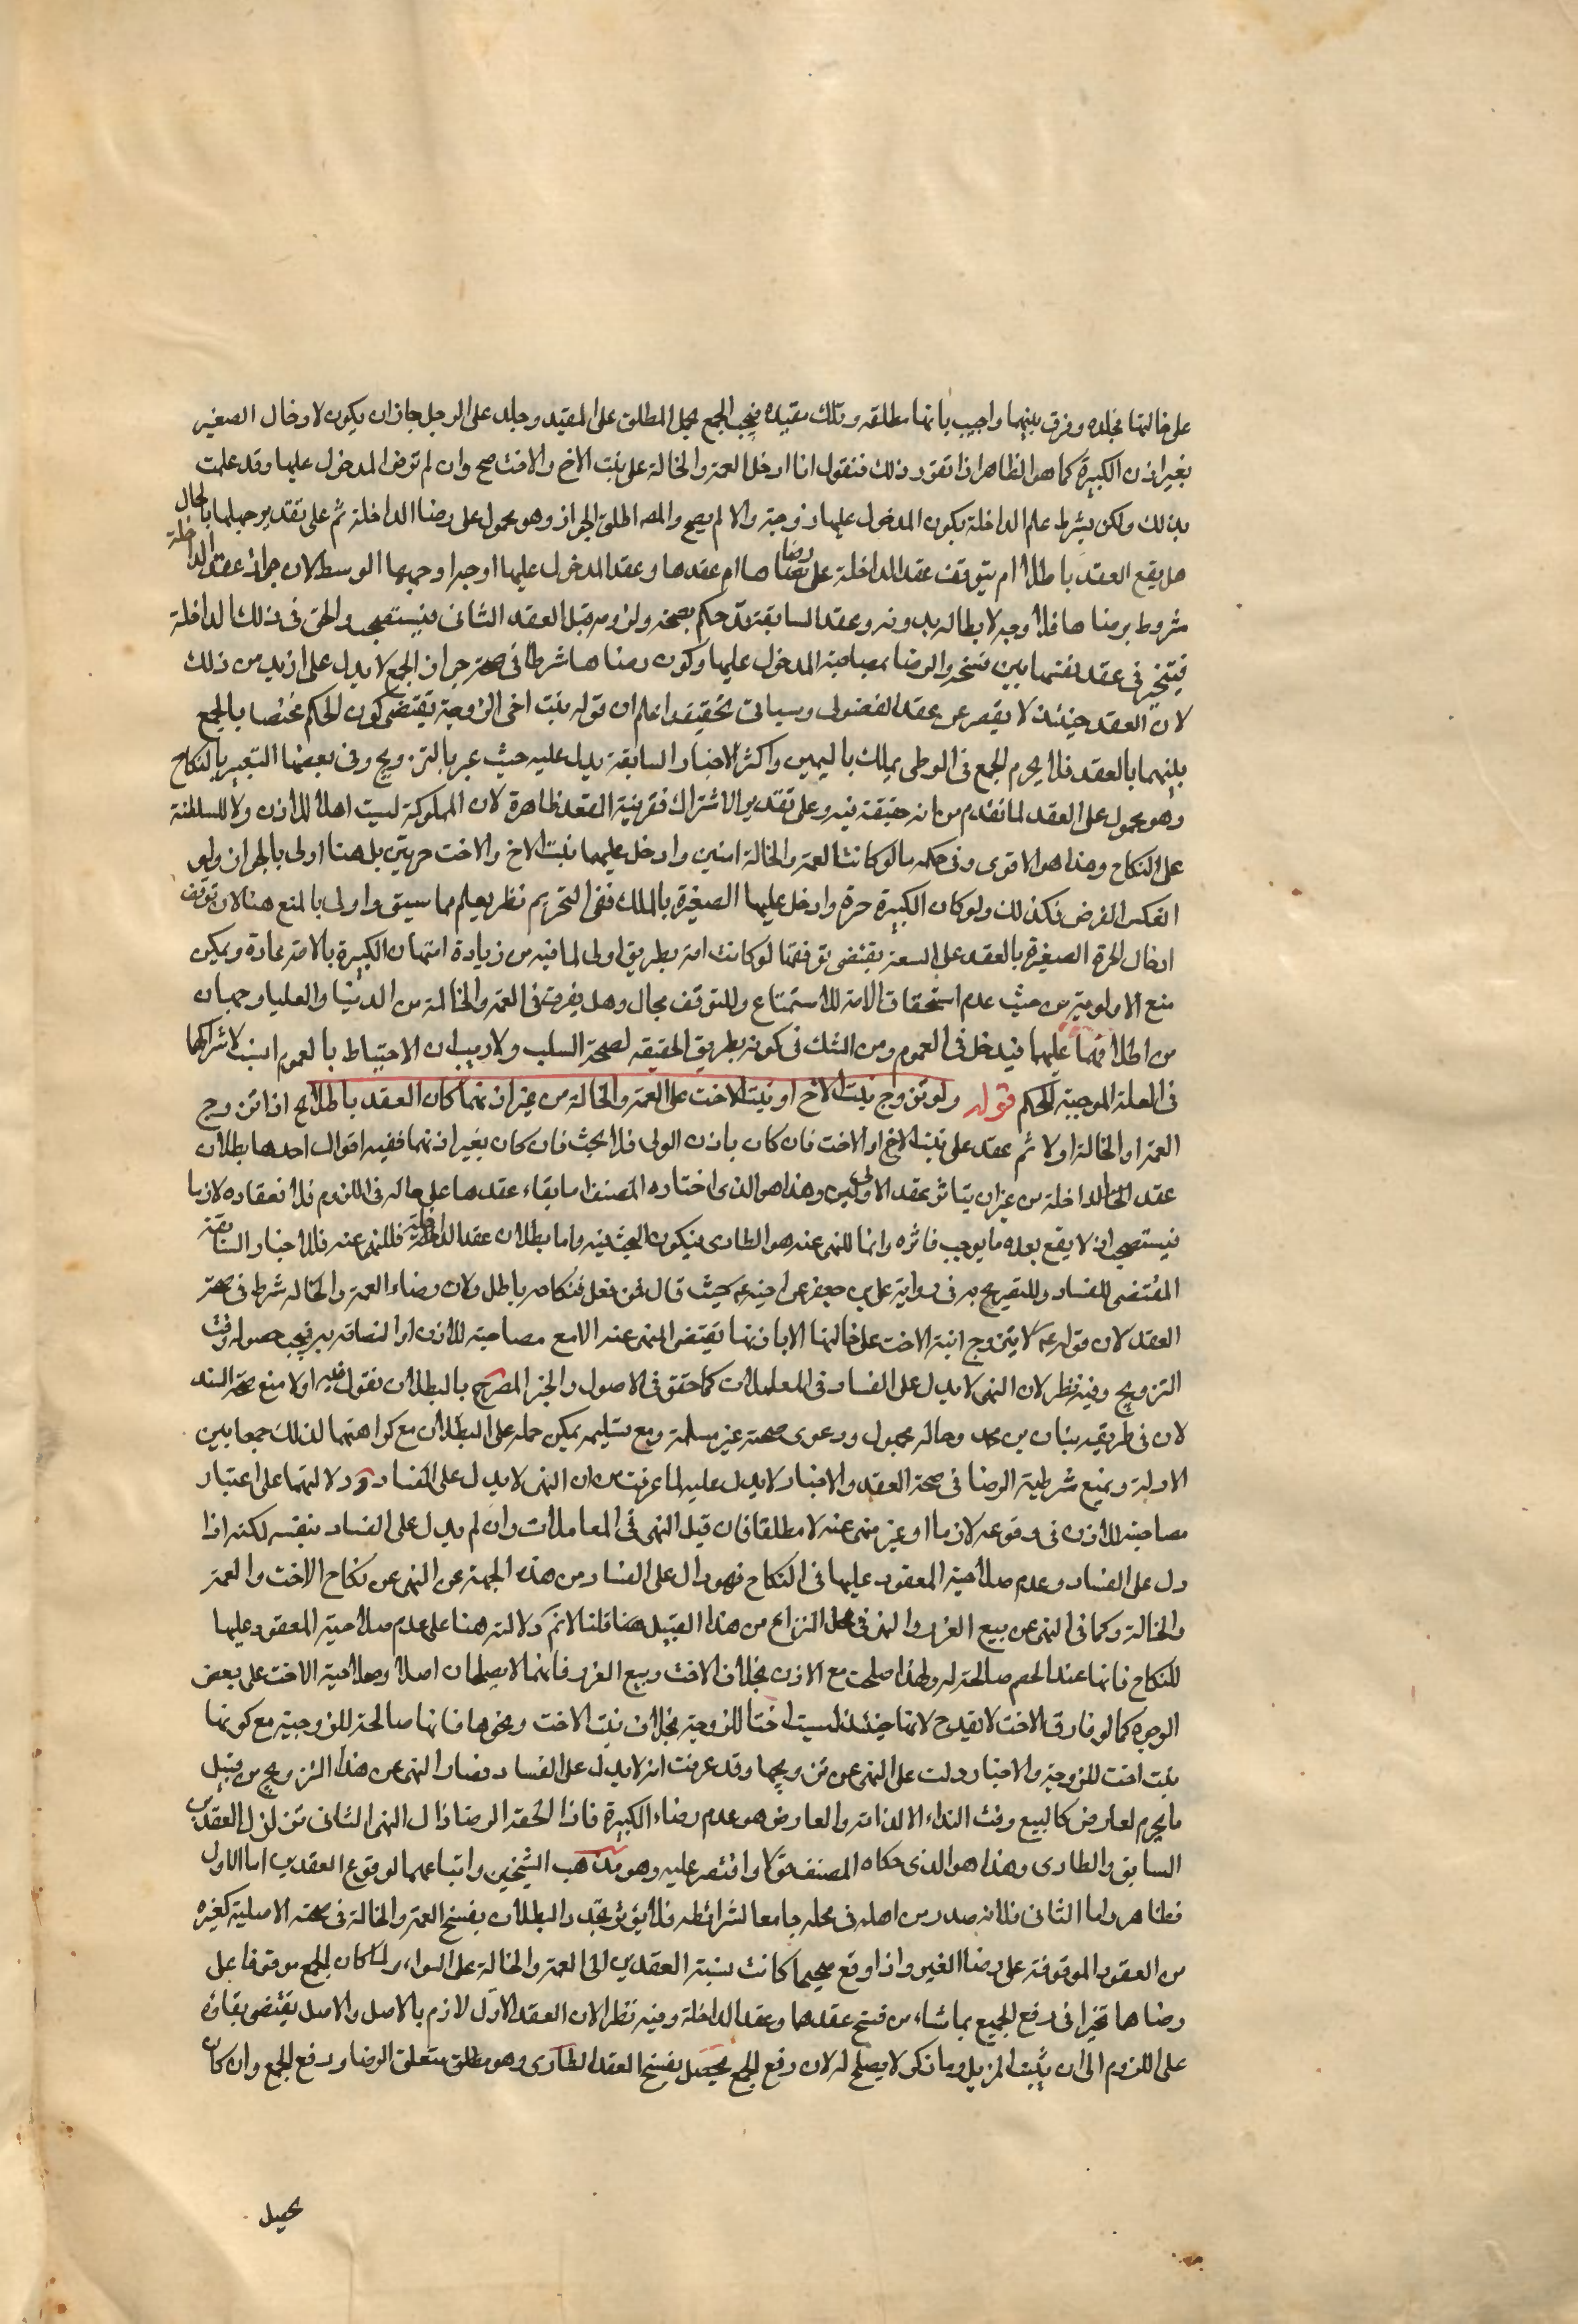 على خالتها فجلده وفرق بينهما واجيب بانها مطلقه وتلك مقيده فيجب الجمع بحمل المطلق على المقيد وجلد على الرجل جاز ان يكون لادخال الصغير
بغير اذن الكبيرة كما هو الظاهر اذا تقرر ذلك فنقول اذا ادخل العمة والخالة على بنت الاخ والاخت صح وان لم ترض المدخول عليها وقد علمت
بذلك ولكن يشرط علم الداخلة بكون المدخول عليها زوجة والا لم يصح والمصـ اطلق الجواز وهو محمول على رضا الداخلة ثم على تقدير جهلها بالحال
هل يقع العقد باطلا ام يتوقف عقد الداخلة على رضاها ام عقدها وعقد المدخول عليها اوجه اوجهها الوسط لان جواز عقد الداخلة
مشروط برضاها فلا وجه لابطاله بدونه وعقد السابقة قد حكم بصحته ولزومه قبل العقد الثاني فيستصحب والحق في ذلك الداخلة
فيتخير في عقد نفسها بين فسخه والرضا بمصاحبة المدخول عليها وكون رضاها شرطا في صحة جواز الجمع لا يدل على ازيد من ذلك
لان العقد حينئذ لا يقصر عن عقد الفضولى وسياتى تحقيقه واعلم ان قوله بنت اخى الزوجة يقتضى كون الحكم مختصا بالجمع
بينهما بالعقد فلا يحرم الجمع فى الوطى بملك باليمين واكثر الاخبار السابقة يدل عليه حيث عبر بالتزويج وفى بعضها التعبير بالنكاح
وهو محمول على العقد لما تقدم من انه حقيقة فيه وعلى تقدير الاشتراك فقرينة العقد ظاهرة لان المملوكة ليست اهلا للاذن ولا للسلطنة
على النكاح وهذا هو الاقوى وفى حكمه ما لو كانت العمة والخالة امتين وادخل عليهما بنت الاخ والاخت حرتين بل هنا اولى بالجواز ولو
انعكس الفرض فكذلك ولو كان الكبيرة حرة وادخل عليها الصغيرة بالملك ففى التحريم نظر يعلم مما سبق واولى بالمنع هنا لان توقف
ادخال الحرة الصغيرة بالعقد على السعة يقتضى توقفها لو كانت امة بطريق اولى لما فيه من زيادة امتهان الكبيرة بالامة عادة ويمكن
منع الاولوية من حيث عدم استحقاق الامة للاستمتاع وللتوقف مجال وهل يفرق فى العمة والخالة من الدنيا والعليا وجهان
من اطلاقهما عليهما فيدخل فى العموم ومن الشك فى كونه بطريق الحقيقه لصحة السلب ولا ريب ان الاحتياط بالعموم انسب لاشتراكها
فى العلة الموجبة للحكم قوله ولو تزوج بنت الاخ او بنت الاخت على العمة والخالة من غير اذنهما كان العقد باطلا الخ اذا تزوج
العمة او الخالة اولا ثم عقد على بنت الاخ او الاخت فان كان باذن الولى فلا بحث فان كان بغير اذنهما ففيه اقوال احدها بطلان
عقد الداخلة من غير ان يتاثر عقد الاوليين وهذا هو الذى اختاره المصنف اما بقاء عقدها على حاله فى اللزوم فلانعقاده لازما
فيستصحب اذ لا يقع بعده ما يوجب فاثره وانما للنهى عنه هو الطارى فيكون البحث فيه واما بطلان عقد الداخلة فللنهى عنه فللاخبار السابقة
المقتضى للفساد وللتصريح به فى رواية على بن جعفر عن اخيه عم حيث قال فمن فعل فنكاحه باطل ولان رضاء العمة والخاله شرط فى صحة
العقد لان قوله عم لا يتزوج ابنة الاخت على خالتها الا باذنها يقتضى النهى عنه الا مع مصاحبة للاذن او التصاقه به فيجب حصوله وقت
التزويج وفيه نظر لان النهى لا يدل على الفساد فى المعاملات كما حقق فى الاصول والخبر المصرح بالبطلان نقول فيه اولا منع صحة السند
لان فى طريقه بنان بن محمد وحاله مجهول ودعوى صحته غير مسلمة ومع تسليمه يمكن حمله على البطلان مع كراهتهما لذلك جمعا بين
الادلة ونمنع شرطية الرضا فى صحة العقد والاخبار لا يدل عليه لما عرفت من ان النهى لا يدل على الفساد ودلالتها على اعتبار
مصاحبة للاذن فى وقوعه لازما او غير منهى عنه لا مطلقا فان قيل النهى فى المعاملات وان لم يدل على الفساد بنفسه لكنه اذا
دل على الفساد وعدم صلاحية المعقود عليها فى النكاح فهو دال على الفساد من هذه الجهة عن النهى عن نكاح الاخت والعمة
والخالة وكما فى النهى عن بيع الغرر والنهى فى محل النزاع من هذا القبيل هنا قلنا لا نم دلالته هنا على عدم صلاحية المعقود عليها
للنكاح فانها عند الخصم صالحة له ولهذا صلحت مع الاذن بخلاف الاخت وبيع الغرر فانهما لا يصلحان اصلا وصلاحية الاخت على بعض
الوجوه كما لو فارق الاخت لا يقدح لانها حينئذ ليست اختا للزوجة بخلاف بنت الاخت ونحوها فانها صالحة للزوجية مع كونها
بنت اخت للزوجة والاخبار دلت على النهى عن تزويجها وقد عرفت انه لا يدل على الفساد فصار النهى عن هذا التزويج من قبيل
ما يحرم لعارض كالبيع وقت النداء لا لذاته والعارض هو عدم رضاء الكبيرة فاذا لحقه الرضا زال النهى الثانى تزلزل العقدين
السابق والطارى وهذا هو الذى حكاه المصنف قولا واقتصر عليه وهو مذهب الشيخين واتباعهما لوقوع العقدين اما الاول
فظاهر واما الثانى فلانه صدر من اهله فى محله جامعا لشرائطه فلا يؤثر تجدد البطلان بفسخ العمة والخالة فى صحته الاصلية كغيره
من العقود الموقوفة على رضا الغير واذا وقع صحيحا كانت نسبة العقدين الى العمة والخالة على السواء ولما كان الجمع موقوفا على
رضاها تخيرا فى رفع الجميع بما شاء من فسخ عقدهما وعقد الداخلة وفيه نظر لان العقد الاول لازم بالاصل والاصل يقتضى بقاؤه
على اللزوم الى ان يثبت المزيل وما ذكر لا يصلح له لان رفع الجمع يحصل بفسخ العقد الطارى وهو مطلق متعلق الرضا ورفع الجمع وان كان
يحصل